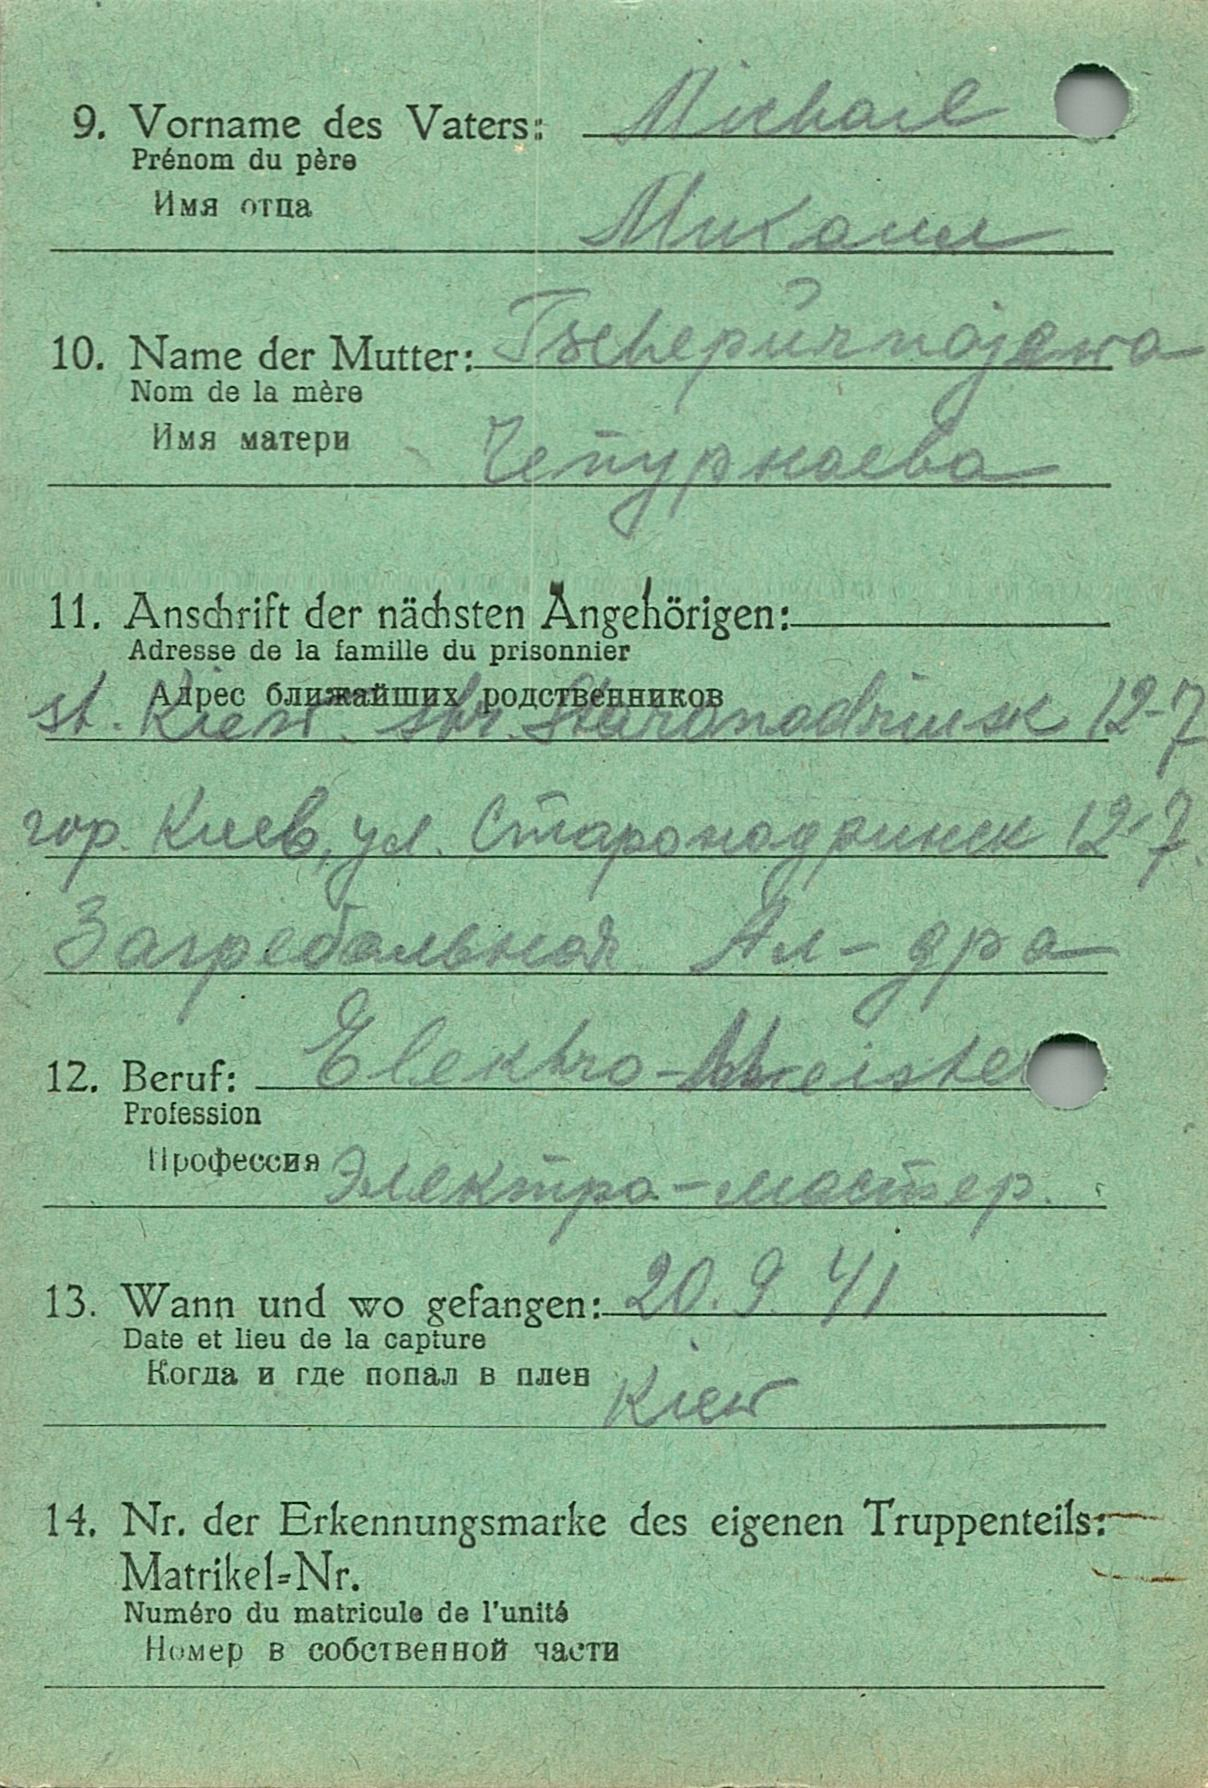 9. Vorname des Vaters: Michael
Prénom du père
Имя отца
Михаил
10. Name der Mutter: Tschepurnajewa
Nom de la mère
Имя матери
Чепурнаева
11. Anschrift der nächsten Angehörigen:
Adresse de la famille du prisonnier
Адрес ближайших родственников
st. Kiew. str. Staronadrinsk 12-7
гор. Киев, ул. Старонадринск 12-7.
Загребальная Ал-дра
12. Beruf: Elektro-Meister
Profession
Профессия
Электро-мастер.
13. Wann und wo gefangen: 20.9.41
Date et lieu de la capture
Когда и где попал в плен
Kiew
14. Nr. der Erkennungsmarke des eigenen Truppenteils:
Matrikel=Nr.
Numéro du matricule de l'unité
Номер в собственной части